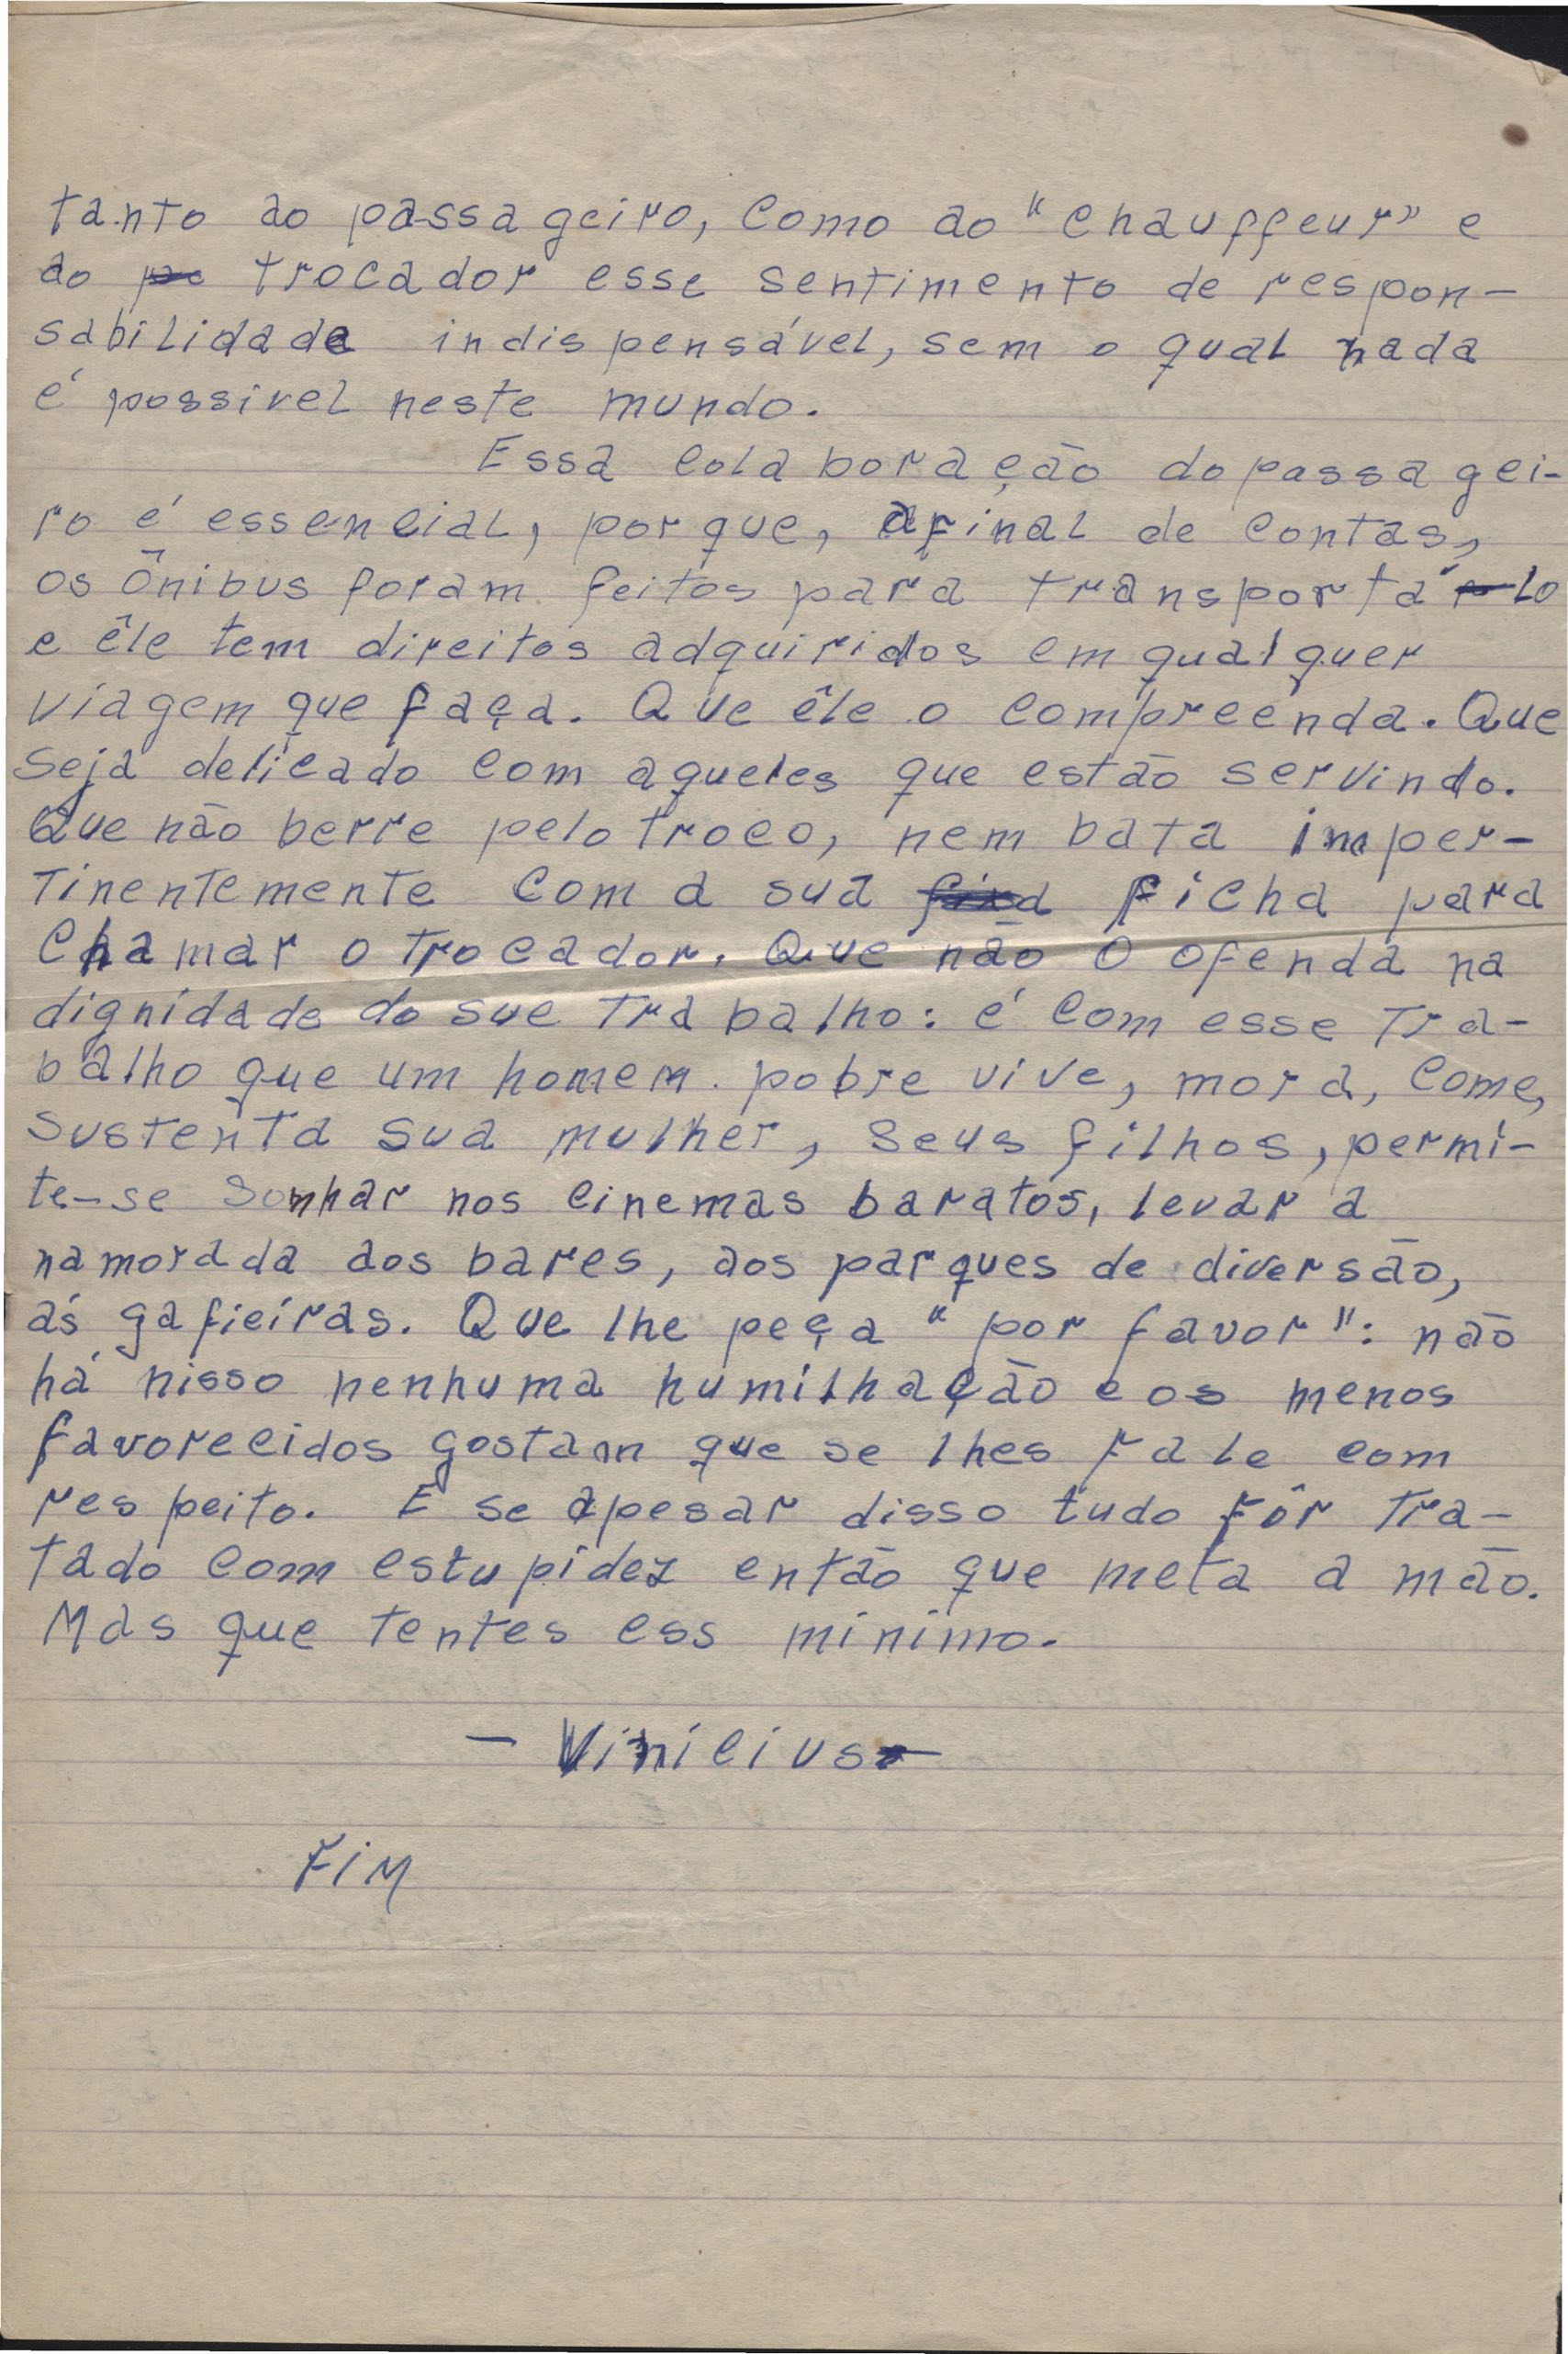 tanto ao passageiro, como ao "chauffeur" e
ao po trocador esse sentimento de respon-
sabilidade indispensável, sem o qual nada
é possivel neste mundo.
Essa colaboração do passagei-
ro é essencial, porque, afinal de contas,
os Ônibus foram feitos para transportá-lo
e êle tem direitos adquiridos em qualquer
viagem que faça. Que êle o compreenda. Que
seja delicado com aqueles que estão servindo.
Que não berre pelo troco, nem bata imper-
tinentemente com a sua ficha para
chamar o trocador. Que não o ofenda na
dignidade do sue trabalho: é com esse tra-
balho que um homem pobre vive, mora, come,
sustenta sua mulher, seus filhos, permi-
te-se sonhar nos cinemas baratos, levar a
namorada aos bares, aos parques de diversão,
ás gafieiras. Que lhe peça "por favor": não
há nisso nenhuma humilhação e os menos
favorecidos gostam que se lhes fale com
respeito. E se apesar disso tudo fôr tra-
tado com estupidez então que meta a mão.
Mas que tentes ess minimo.
- Vinicius -
FIM